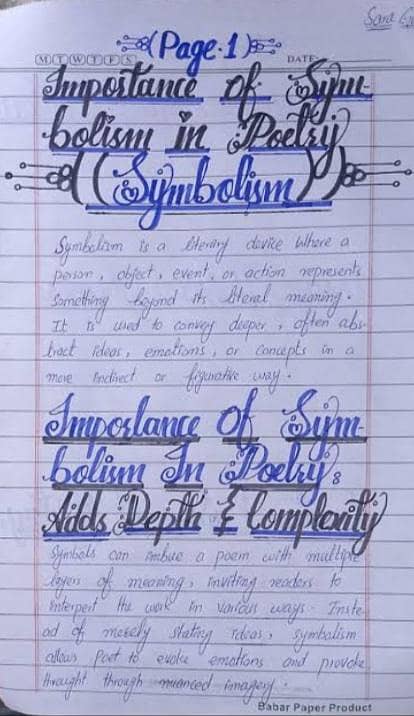 Sara
(Page.1)
M T W T F S
DATE:
Importance of Sym-
bolism in Poetry
((Symbolism))
Symbolism is a literary device where a
person, object, event, or action represents
something beyond its literal meaning.
It is used to convey deeper, often abs-
tract ideas, emotions, or concepts in a
more indirect or figurative way.
Importance Of Sym-
bolism In Poetry:
Adds Depth & Complexity
Symbols can imbue a poem with multiple
layers of meaning, inviting readers to
interpert the work in various ways. Inste-
ad of merely stating ideas, symbolism
allows Poet to evoke emotions and provoke
throught through nuanced imagery.
Babar Paper Product